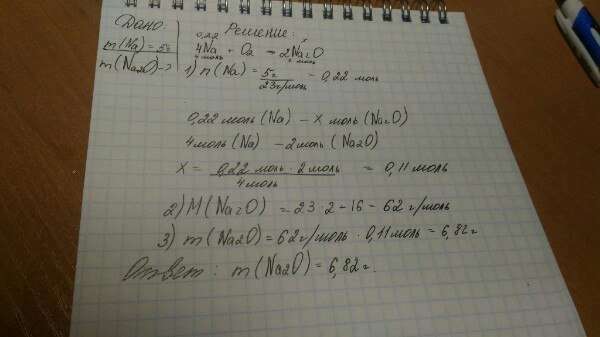 Дано: Решение:
m(Na) = 5г
m(Na2O) - ?
0,22 x
4Na + O2 = 2Na2O
4 моль 2 моль
1) n(Na) = 5г / 23г/моль = 0,22 моль
0,22 моль (Na) - x моль (Na2O)
4 моль (Na) - 2 моль (Na2O)
X = 0,22 моль · 2 моль / 4 моль = 0,11 моль
2) M(Na2O) = 23·2+16 = 62 г/моль
3) m(Na2O) = 62 г/моль · 0,11 моль = 6,82 г
Ответ: m(Na2O) = 6,82 г.